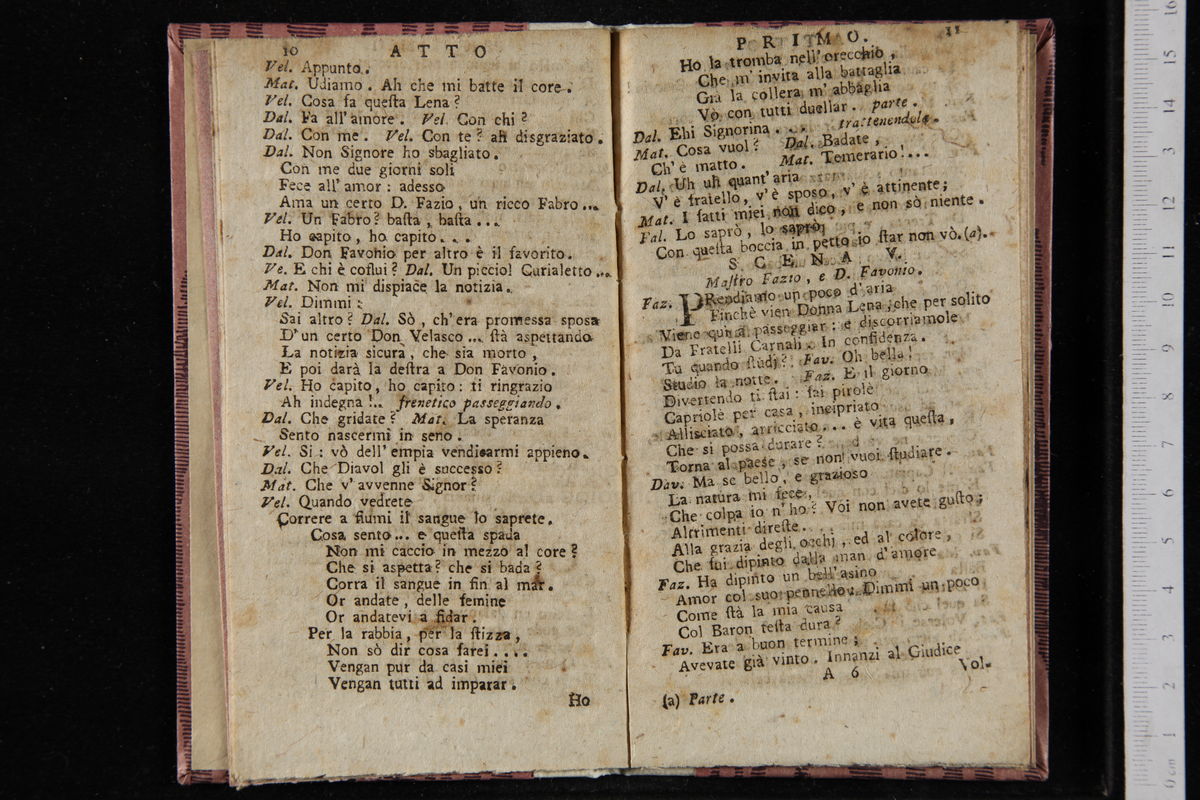 10 ATTO
Vel. Appunto.
Mat. Udiamo. Ah che mi batte il core.
Vel. Cosa fa queſta Lena?
Dal. Fa all'amore. Vel. Con chi?
Dal. Con me. Vel. Con te? ah disgraziato.
Dal. Non Signore ho sbagliato.
Con me due giorni soli
Fece all'amor: adesso
Ama un certo D. Fazio, un ricco Fabro...
Vel. Un Fabro? baſta, baſta...
Ho capito, ho capito...
Dal. Don Favonio per altro è il favorito.
Ve. E chi è coſtui? Dal. Un picciol Curialetto...
Mat. Non mi dispiace la notizia.
Vel. Dimmi:
Sai altro? Dal. Sò, ch'era promessa sposa
D'un certo Don Velasco... ſtà aspettando
La notizia sicura, che sia morto,
E poi darà la deſtra a Don Favonio.
Vel. Ho capito, ho capito: ti ringrazio
Ah indegna!.. frenetico passeggiando.
Dal. Che gridate? Mat. La speranza
Sento nascermi in seno.
Vel. Si: vò dell'empia vendicarmi appieno.
Dal. Che Diavol gli è successo?
Mat. Che v'avvenne Signor?
Vel. Quando vedrete
Correre a fiumi il sangue lo saprete.
Cosa sento... e queſta spada
Non mi caccio in mezzo al core?
Che si aspetta? che si bada?
Corra il sangue in fin al mar.
Or andate, delle femine
Or andatevi a fidar.
Per la rabbia, per la ſtizza,
Non sò dir cosa farei....
Vengan pur da casi miei
Vengan tutti ad imparar.
Ho
PRIMO. 11
Ho la tromba nell'orecchio,
Che m'invita alla battaglia
Già la collera m'abbaglia
Vò con tutti duellar. parte.
Dal. Ehi Signorina... trattenendola.
Mat. Cosa vuol? Dal. Badate,
Ch'è matto. Mat. Temerario!...
Dal. Uh uh quant'aria
V'è fratello, v'è sposo, v'è attinente;
Mat. I fatti miei non dico, e non sò niente.
Fal. Lo saprò, lo saprò,
Con queſta boccia in petto io ſtar non vò.(a).
SCENA V.
Maſtro Fazio, e D. Favonio.
Faz. PRendiamo un poco d'aria
Finchè vien Donna Lena, che per solito
Viene quì a passeggiar: e discorriamole
Da Fratelli Carnali. In confidenza.
Tu quando ſtudj? Fav. Oh bella!
Studio la notte. Faz. E il giorno
Divertendo ti ſtai: fai pirole
Capriole per casa, incipriato
Allisciato, arricciato... è vita queſta,
Che si possa durare?
Torna al paese, se non vuoi ſtudiare.
Dav. Ma se bello, e grazioso
La natura mi fece,
Che colpa io n'ho? Voi non avete guſto;
Altrimenti direſte.
Alla grazia degli occhj, ed al colore,
Che fui dipinto dalla man d'amore
Faz. Ha dipinto un bell'asino
Amor col suo pennello. Dimmi un poco
Come ſtà la mia causa
Col Baron teſta dura?
Fav. Era a buon termine;
Avevate già vinto. Innanzi al Giudice
A 6 Vol.
(a) Parte.